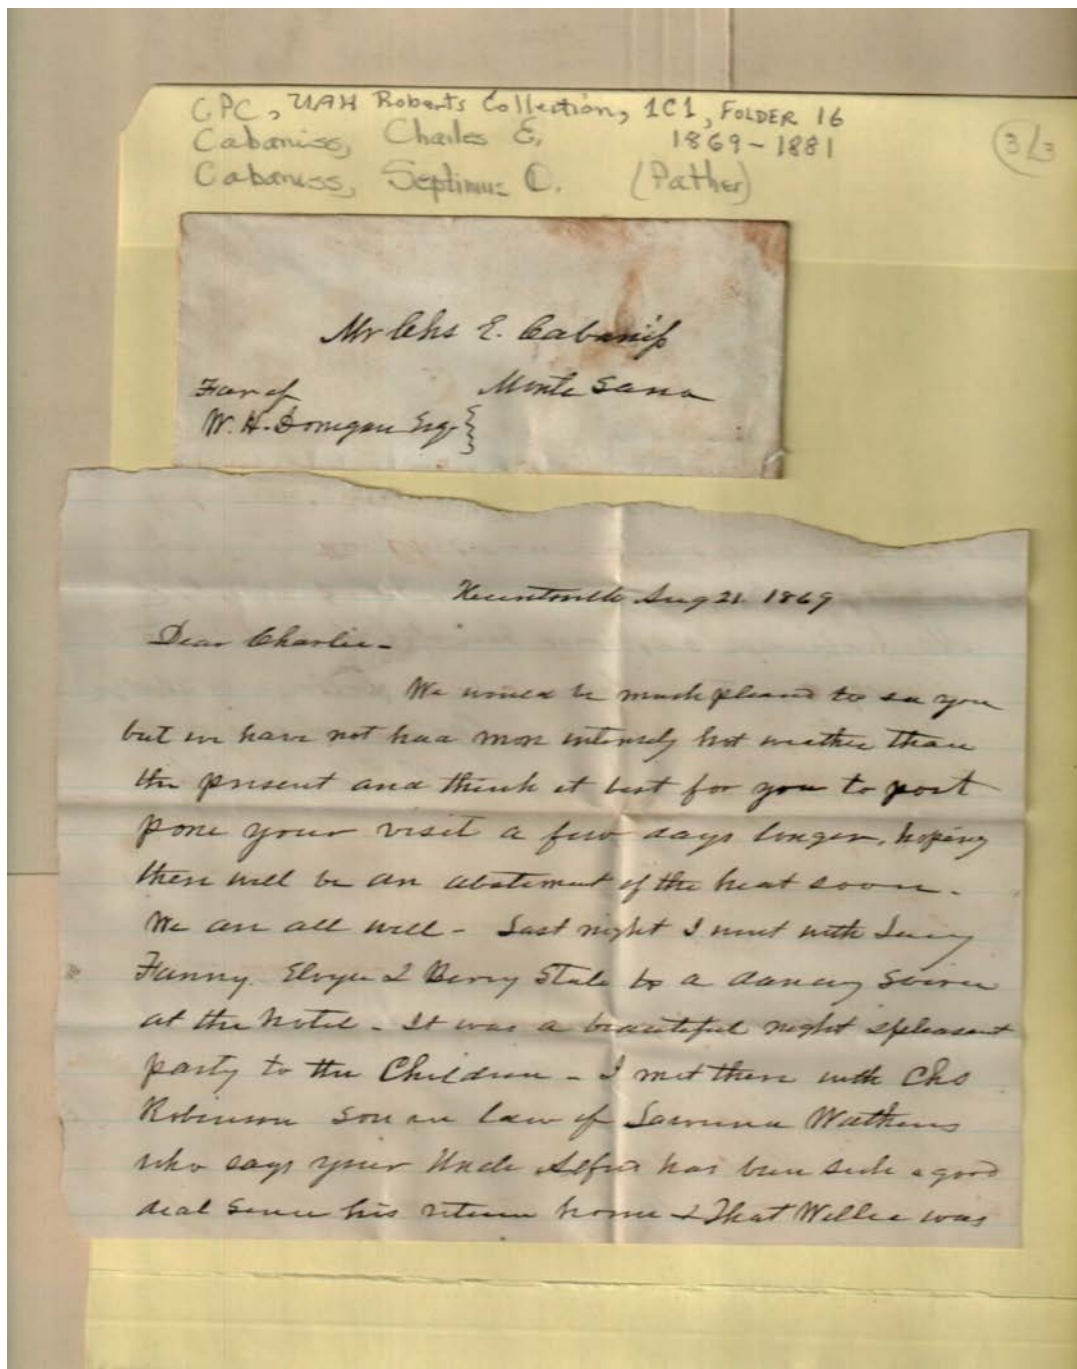 CPC, UAH Roberts Collection, 1C1, FOLDER 16
Cabaniss, Charles E. 1869-1881
3/3
Cabaniss, Septimus D. (Father)
Mr Chs E. Cabaniss
Monte Sano
Favor of
W. H. Donegan Esq.
Huntsville Aug 21. 1869
Dear Charlie-
We would be much pleased to see you
but we have not had more intensely hot weather than
the present and think it best for you to post
pone your visit a few days longer, hoping
there will be an abatement of the heat soon.
We are all well - Last night I went with Lucy
Fanny. & to a dancing Soiree
at the hotel - It was a beautiful night & pleasant
party to the Children - I met there with Chs
Robinson son in law of Watkins
who says your Uncle has been sick a good
deal since his return home & That Willie was